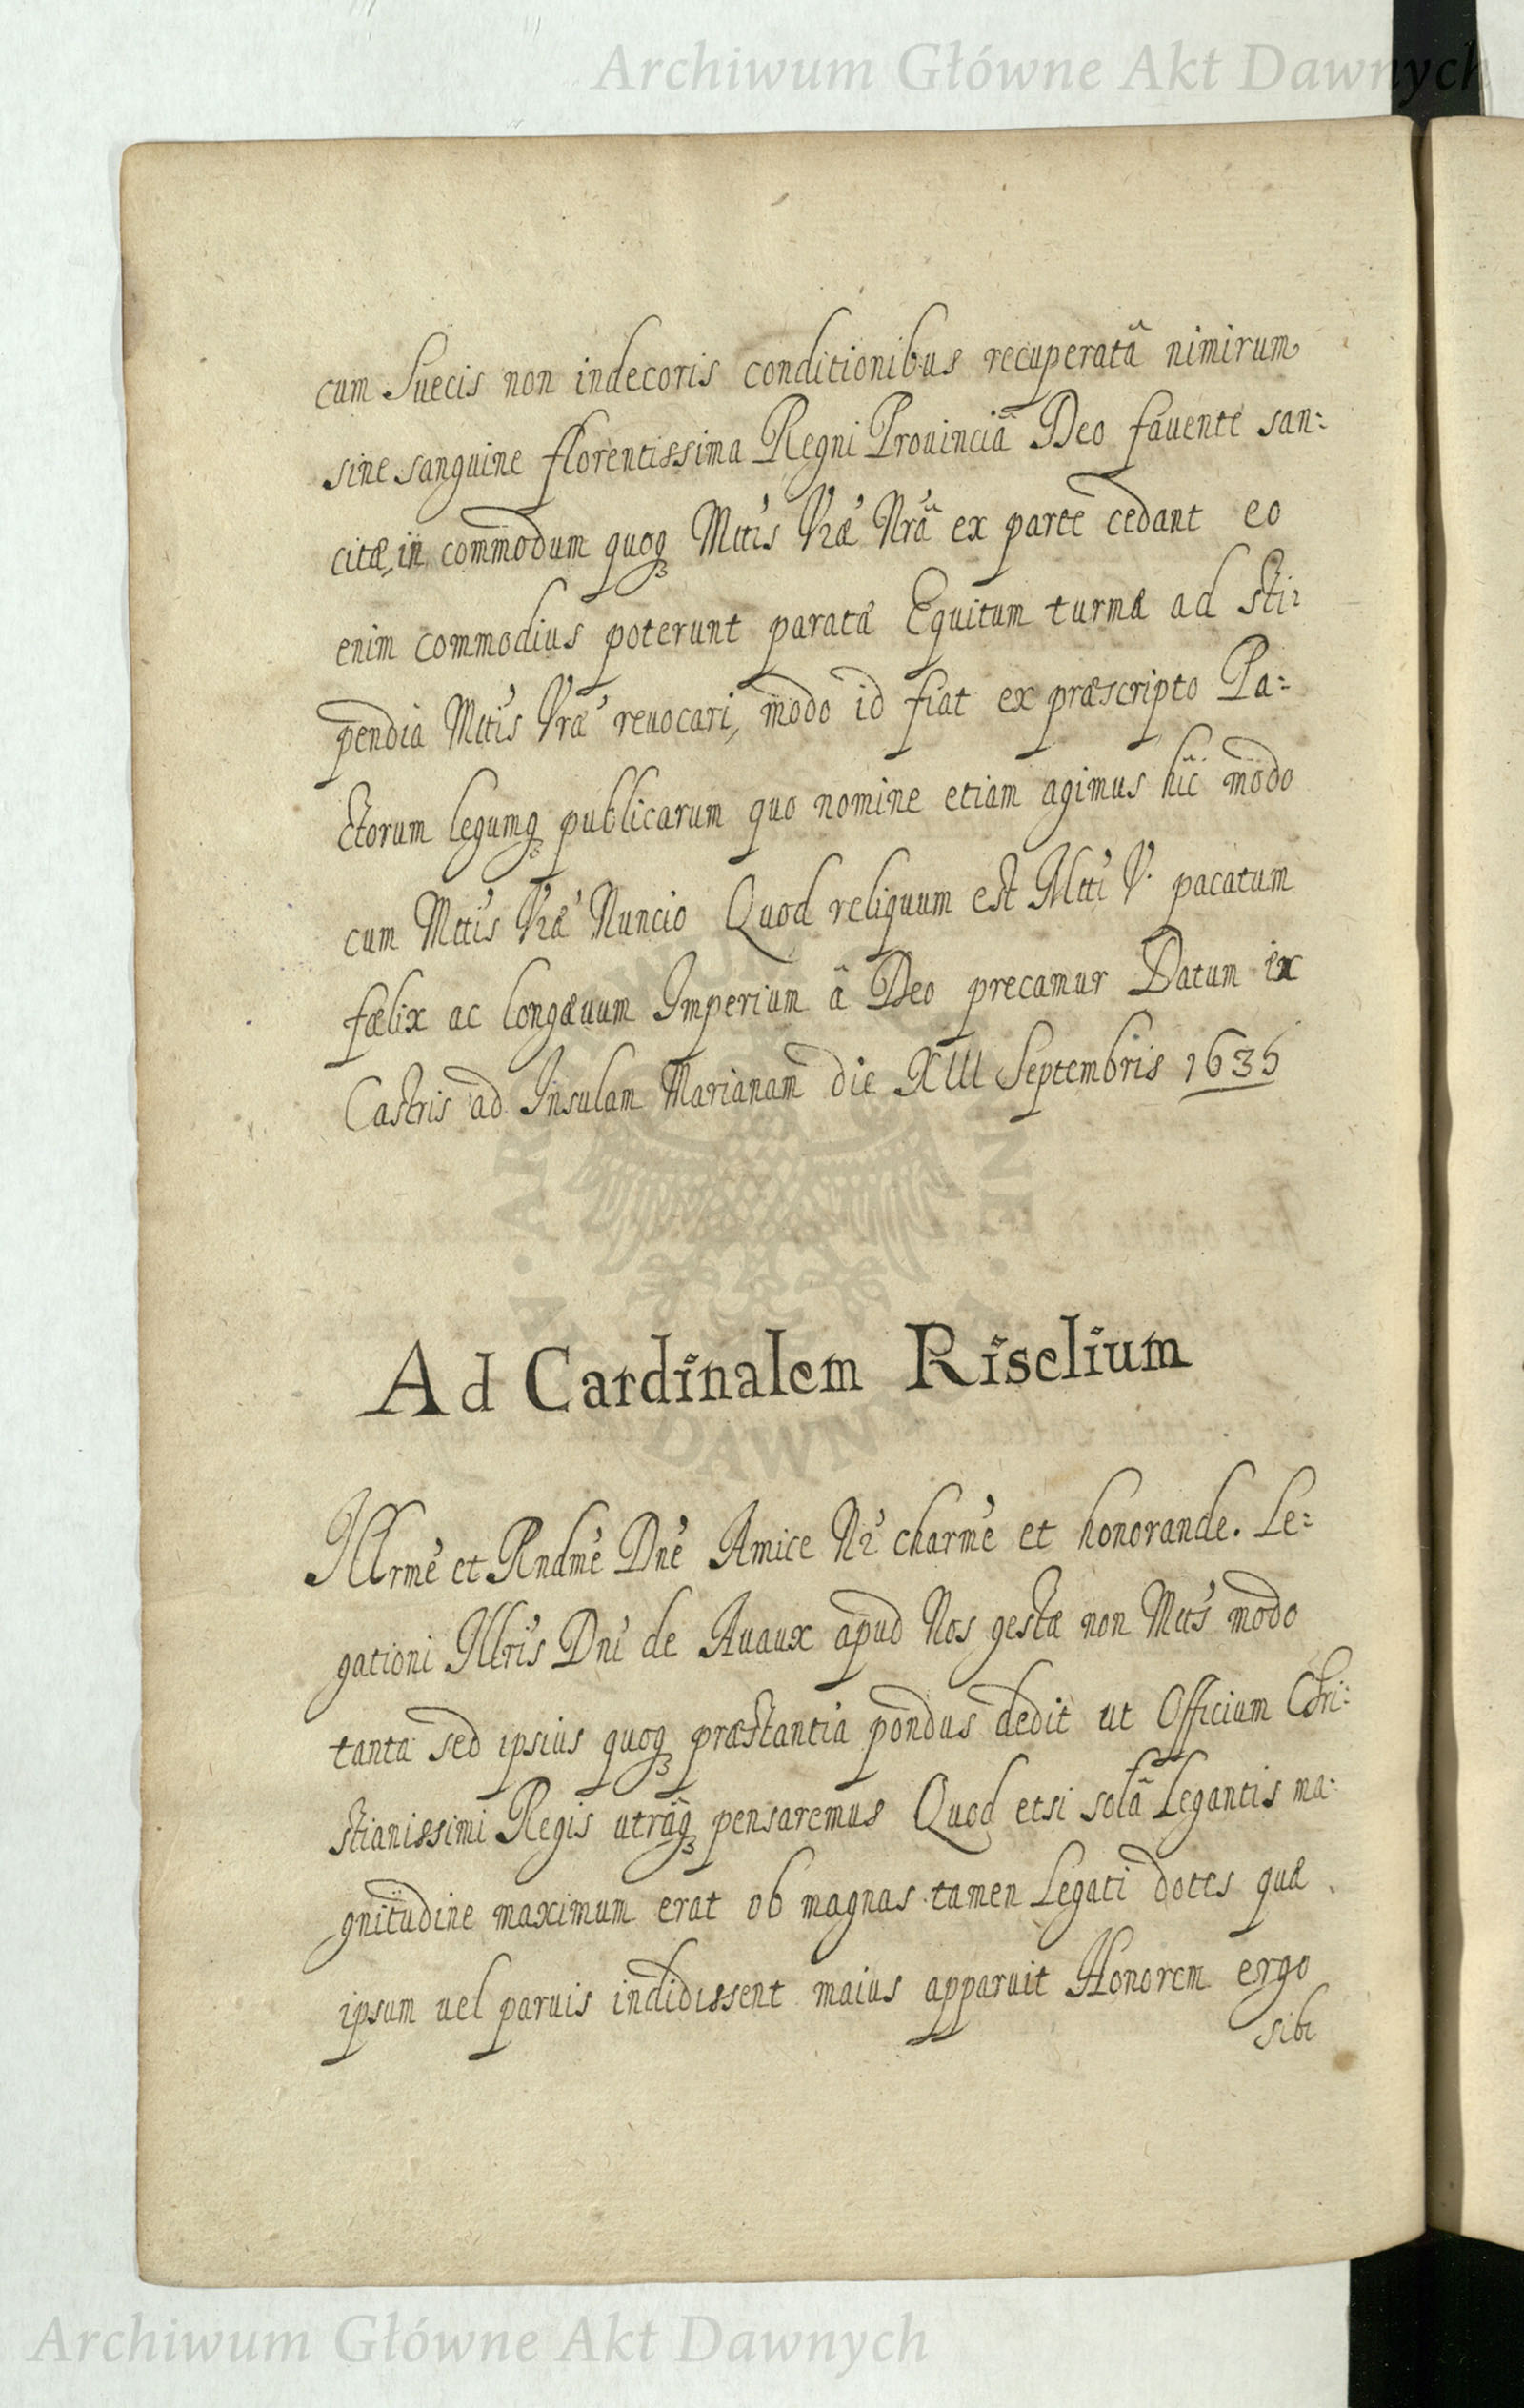 Archiwum Główne Akt Dawnych
cum Suecis non indecoris conditionibus recuperatâ nimirum
sine sanguine florentissima Regni Prouinciâ Deo fauente san:
citæ, in commodum quoq₃ Mttis Vræ Nrâ ex parte cedant eo
enim commodius poterunt paratæ Equitum turmæ ad Sti:
pendia Mttis Vræ reuocari, modo id fiat ex præscripto Pa:
ctorum legumq₃ publicarum quo nomine etiam agimus hîc modo
cum Mttis Vræ Nuncio Quod reliquum est Mtti V. pacatum
fœlix ac longæuum Imperium â Deo precamur Datum ex
Castris ad Insulam Marianam die XIII Septembris 1635
Ad Cardinalem Riselium
Illrme et Rndme Dne Amice Nr charme et honorande. Le:
gationi Illris Dni de Auaux apud Nos gestæ non Mttis modo
tanta sed ipsius quoq₃ præstantia pondus dedit ut Officium Chri:
stianissimi Regis utrâq₃ pensaremus Quod etsi solâ Legantis ma:
gnitudine maximum erat ob magnas tamen Legati dotes quæ
ipsum uel paruis indidissent maius apparuit Honorem ergo
sibi
Archiwum Główne Akt Dawnych